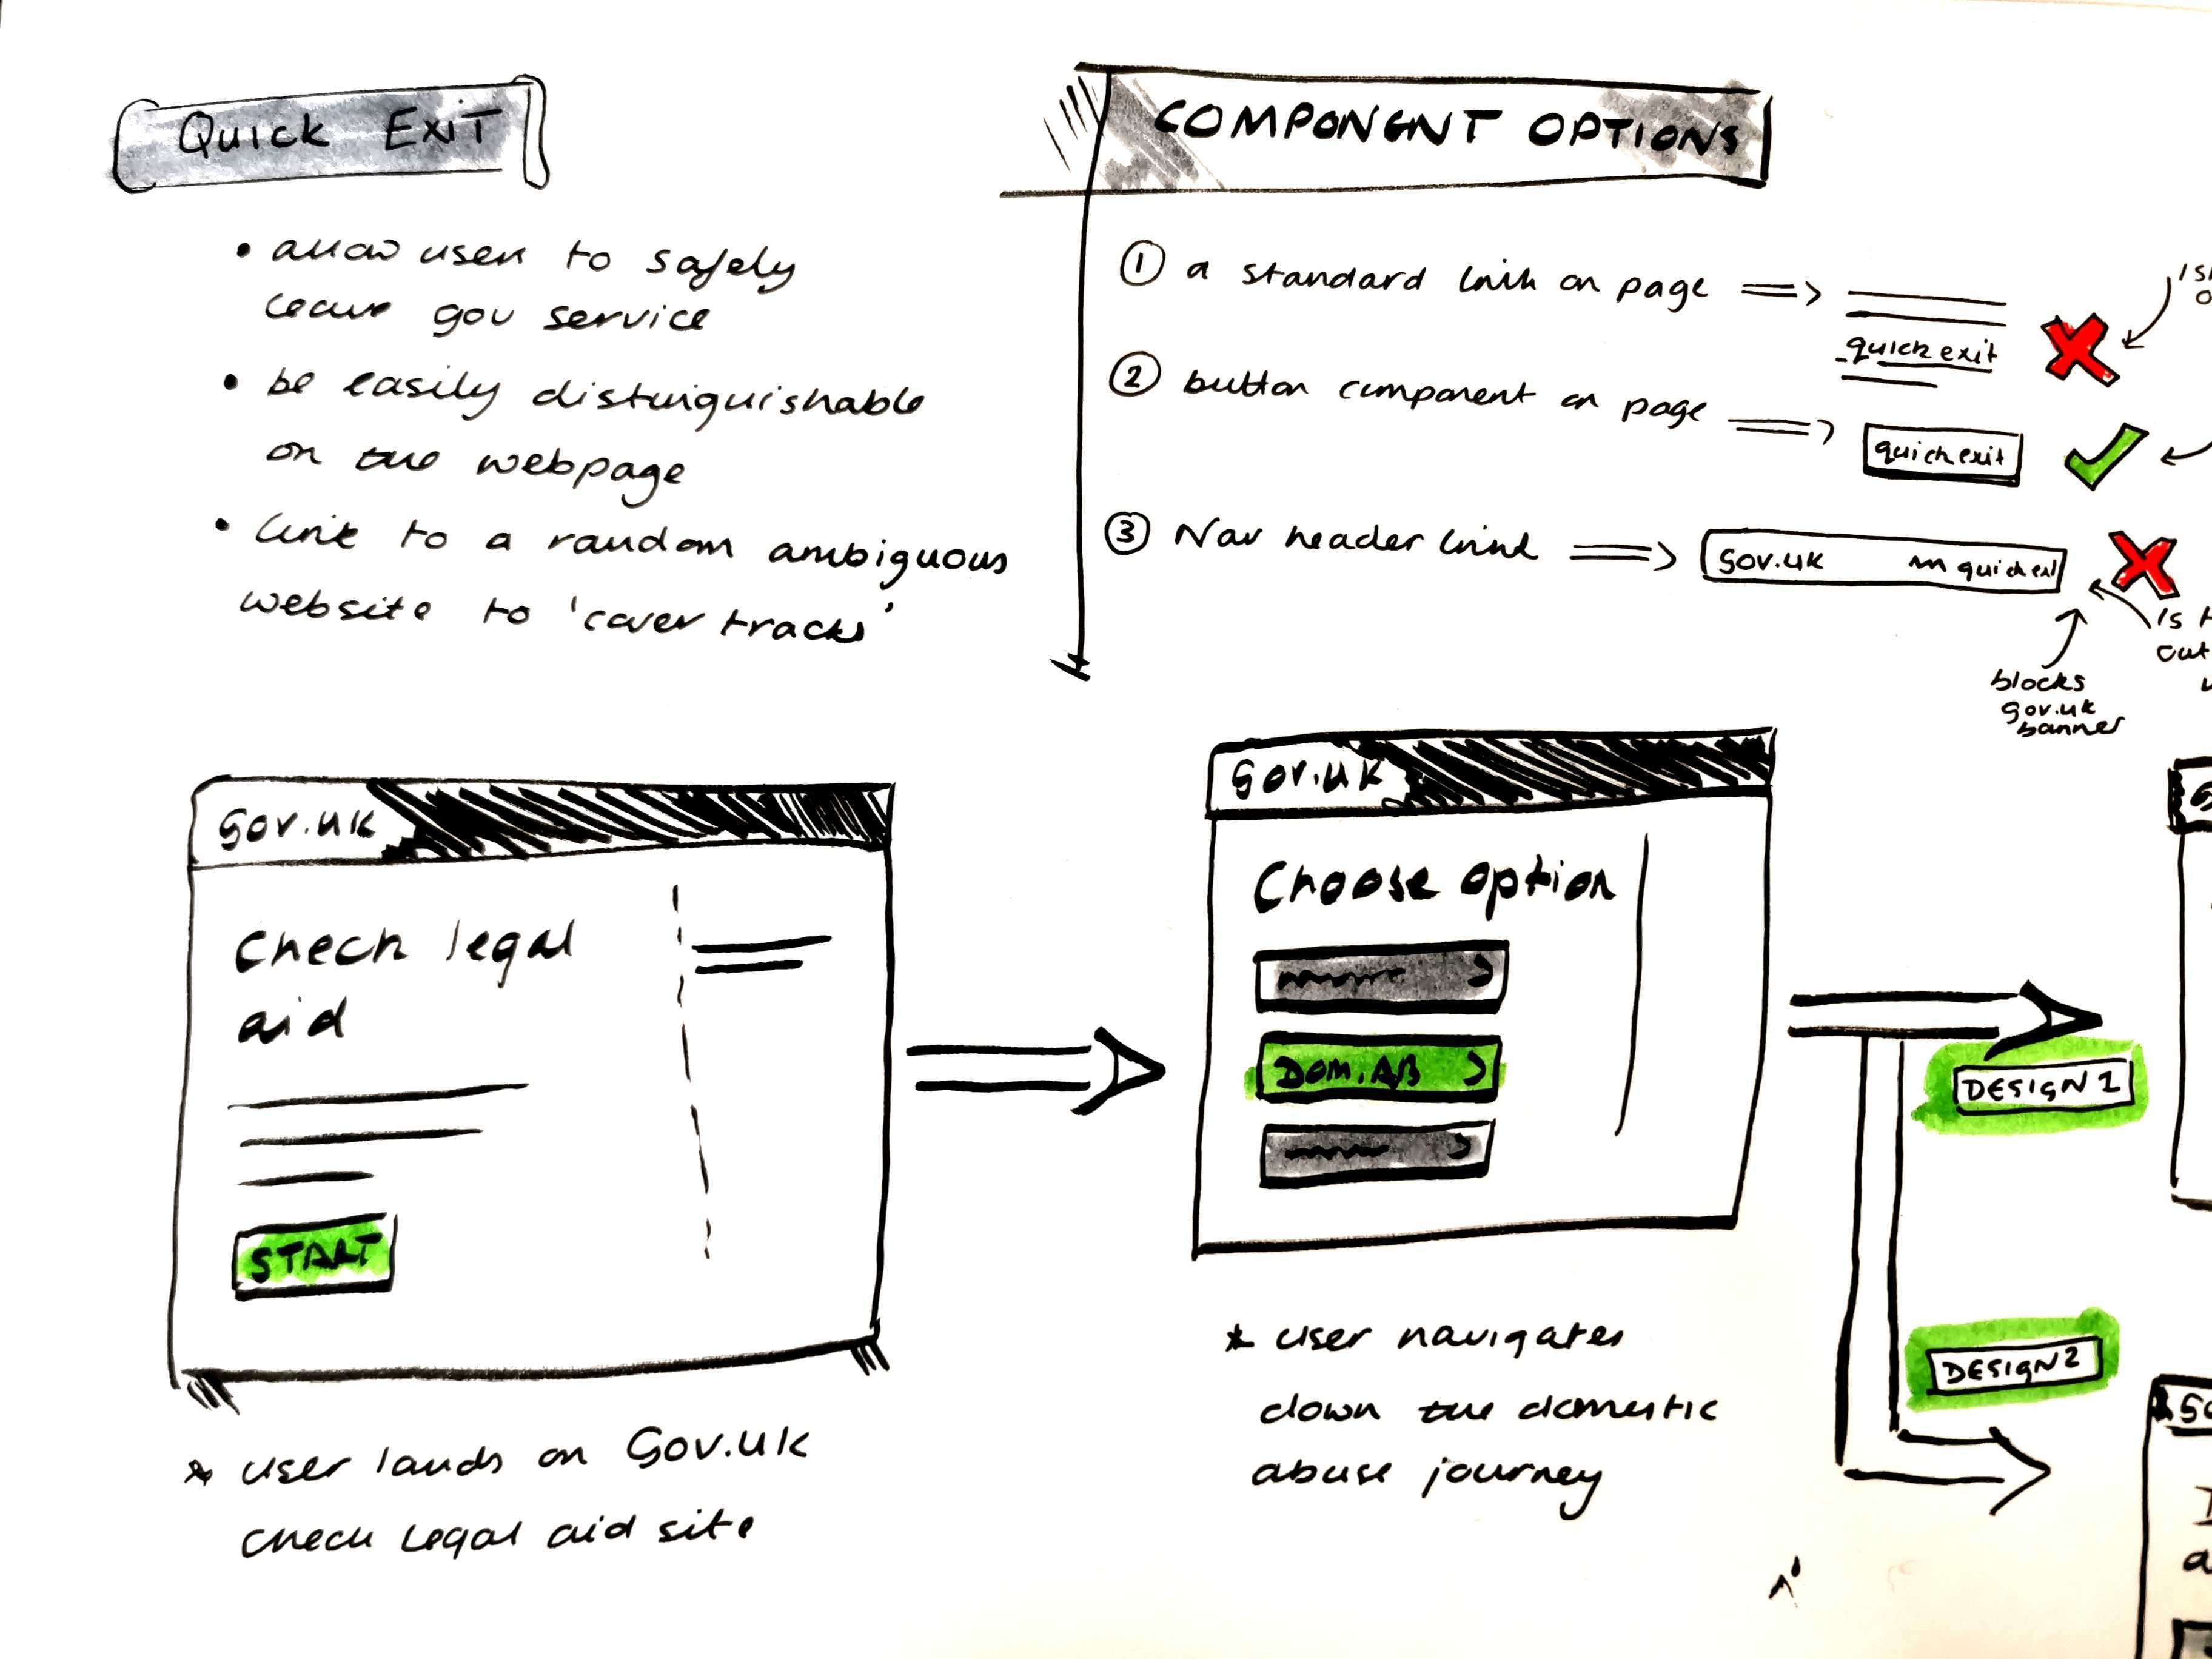 Quick Exit
• allow user to safely
leave gov service
• be easily distinguishable
on the webpage
• link to a random ambiguous
website to 'cover tracks'
COMPONENT OPTIONS
① a standard link on page
quick exit
② button component on page
quick exit
③ Nav header link
Gov.uk quick exit
blocks
gov.uk
banner
is
out
Gov.uk
Check legal
aid
START
* user lands on Gov.uk
check legal aid site
Gov.uk
Choose option
DOM.AB
* user navigates
down the domestic
abuse journey
DESIGN 1
DESIGN 2